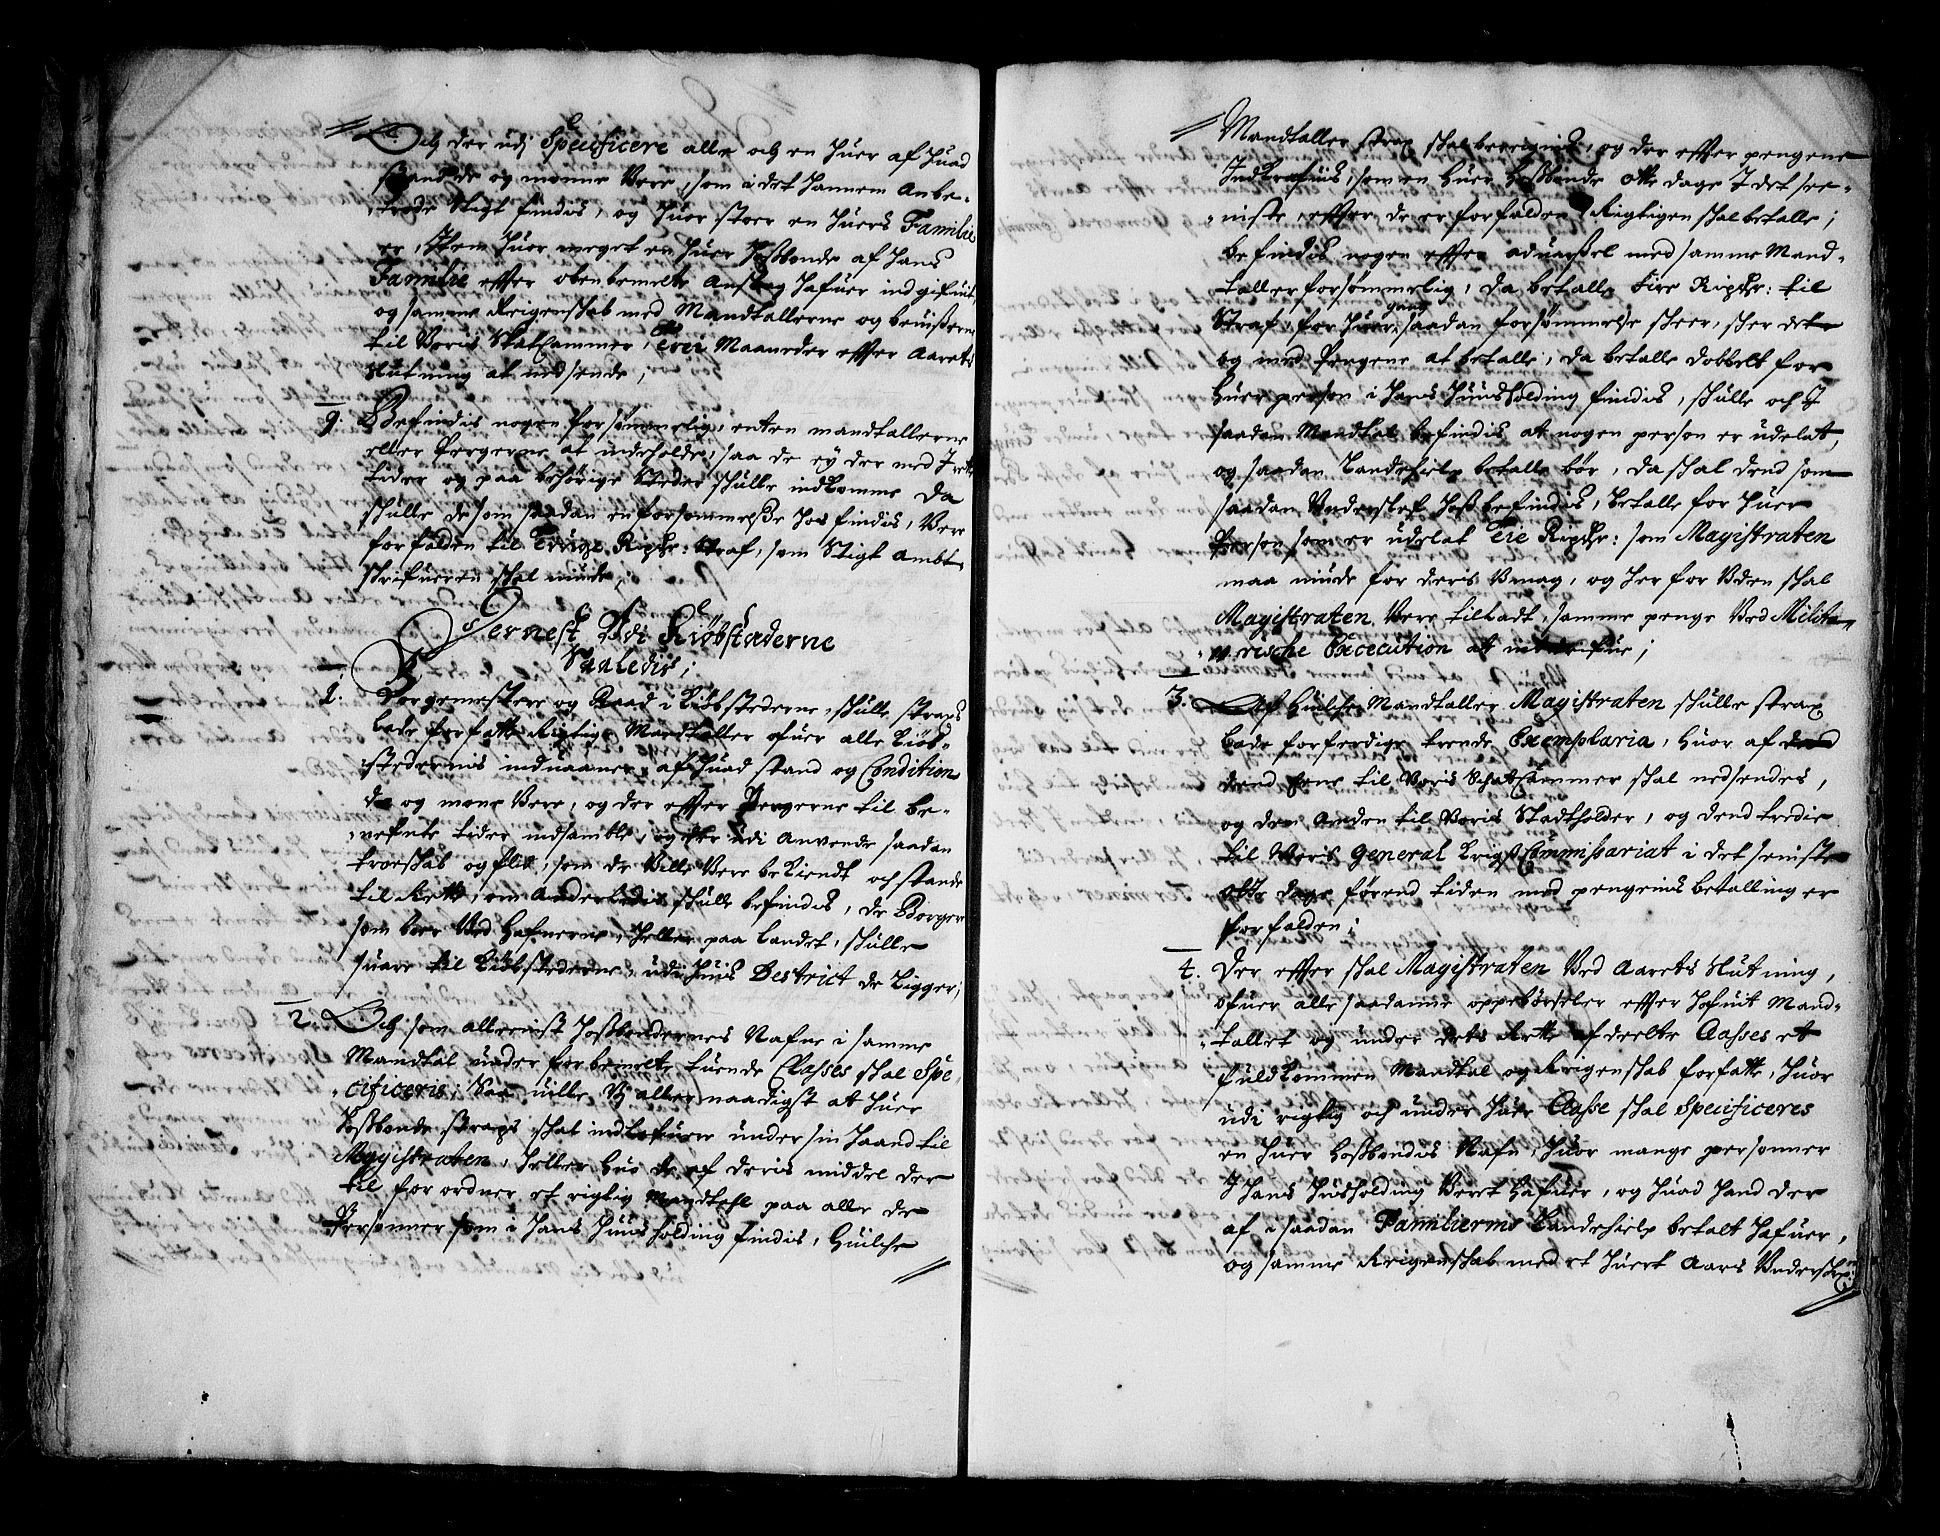 Och der udj Specificere alle och en huer af huad
stand de og monne Vere, som i det hannem Anbe-
trode Stigt findis, og huor stoer en huers Familie
er, Item huor meget en huer hosbonde af hans
Familie effter obenbemelte Anslag hafuer indgifuit
og samme Reigenskab med Mandtallerne og beuiserne
til Voris Skatkammer, Trei Maaneder effter Aarets
Slutning at nedsende;
9. Befindis nogen forsømmelig, enten mandtallerne
eller Pengene at indeholde, saa de ey der med I rette
tider og paa behörige Steder skulle indkomme da
skulle de som saadan en forsømmelße hos findis, Vere
forfalden til Trei Ripdr: Straf, som Stigt Ambt-
skrifueren skal inde;
Dernest Udi Kiøbstæderne
Saaledis;
1. Borgemestere og Raad i Kiøbstederne, skulle straxs
lade forfatte Rigtige Mandtaller ofuer alle Kiøb-
stedernis induaaner, af huad stand og Condition
de og mone Vere, og der effter Pengene til be-
nefnte tider indsamble, og her udi Anvende saadan
troeskab og flid, som de Ville Vere bekiendt och stande
til Rette, om Anderledis skulle befindis, de Borger
som boer Ved Hafnerne, heller paa Landet, skulle
suare til Kiøbstederne, udi huis Destrict de Ligger;
2. Och som allerenist hosbondernes Nafne i samme
Mandtal under forbemelte tuende Classes skal Spe-
cificeris; Saa uille Vj allernaadigst at huer
Hosbonde straxs skal indlefuere under sin haand til
Magistraten, heller huo de af deris middel der
til forordner et rigtig Mandtahl paa alle de
Personner som i hans huusholding findis, huilche
Mandtaller strax skal beregnis, og der effter pengene
Indkrefuis, som en huer Hosbonde Otte dage I det see-
niste, effter de er forfalden Rigtigen skal betalle;
befindis nogen effter aduarßel med samme Mand-
taller forsømmelig, da betalle Fire Ripdr: til
Straf, for huer gang saadan forsømmelse skeer, skee dette
og med Pengene at betalle, da betalle dobbelt for
huer person i hans Huusholding findis, skulle och I
saadan Mandtal befindis at nogen person er udelat,
og saadan Landehielp betalle bör, da skal dend som
saadan Underslef hoß befindis, betalle for huer
Person som er udelat Tie Ripdr: som Magistraten
maa inde for deris Vmag, og her for Vden skal
Magistraten Vere tilladt, samme penge Ved Milita-
rische Excecution at inddrifue;
3. Af Huilche Mandtaller Magistraten skulle strax
lade forferdige trende Exemplaria, Huor af
dend Eene til Voris Schatkammer skal nedsendes,
og den Anden til Voris Stadtholder, og dend tredie
til Voris General Krigs Commissariat i det seniste
Otte dage førend tiden med pengenis betalling er
forfalden;
4. Der effter skal Magistraten Ved Aarets Slutning,
ofuer alle saadanne oppebörseler effter hafuit Mand-
tallet og under dets Rette afdeelte Classes et
fuldkommen Mandtal og Reigenskab forfatte, huor
udi rigtig och under huer Classe skal Specificeres
en huer Hosbondis Nafn, huor mange personner
I hans Husholding Verit hafuer, og huad hand der
af i saadan Familiernis Landehielp betalt hafuer,
og samme Reigenskab med et huert Aars Vnderskref: